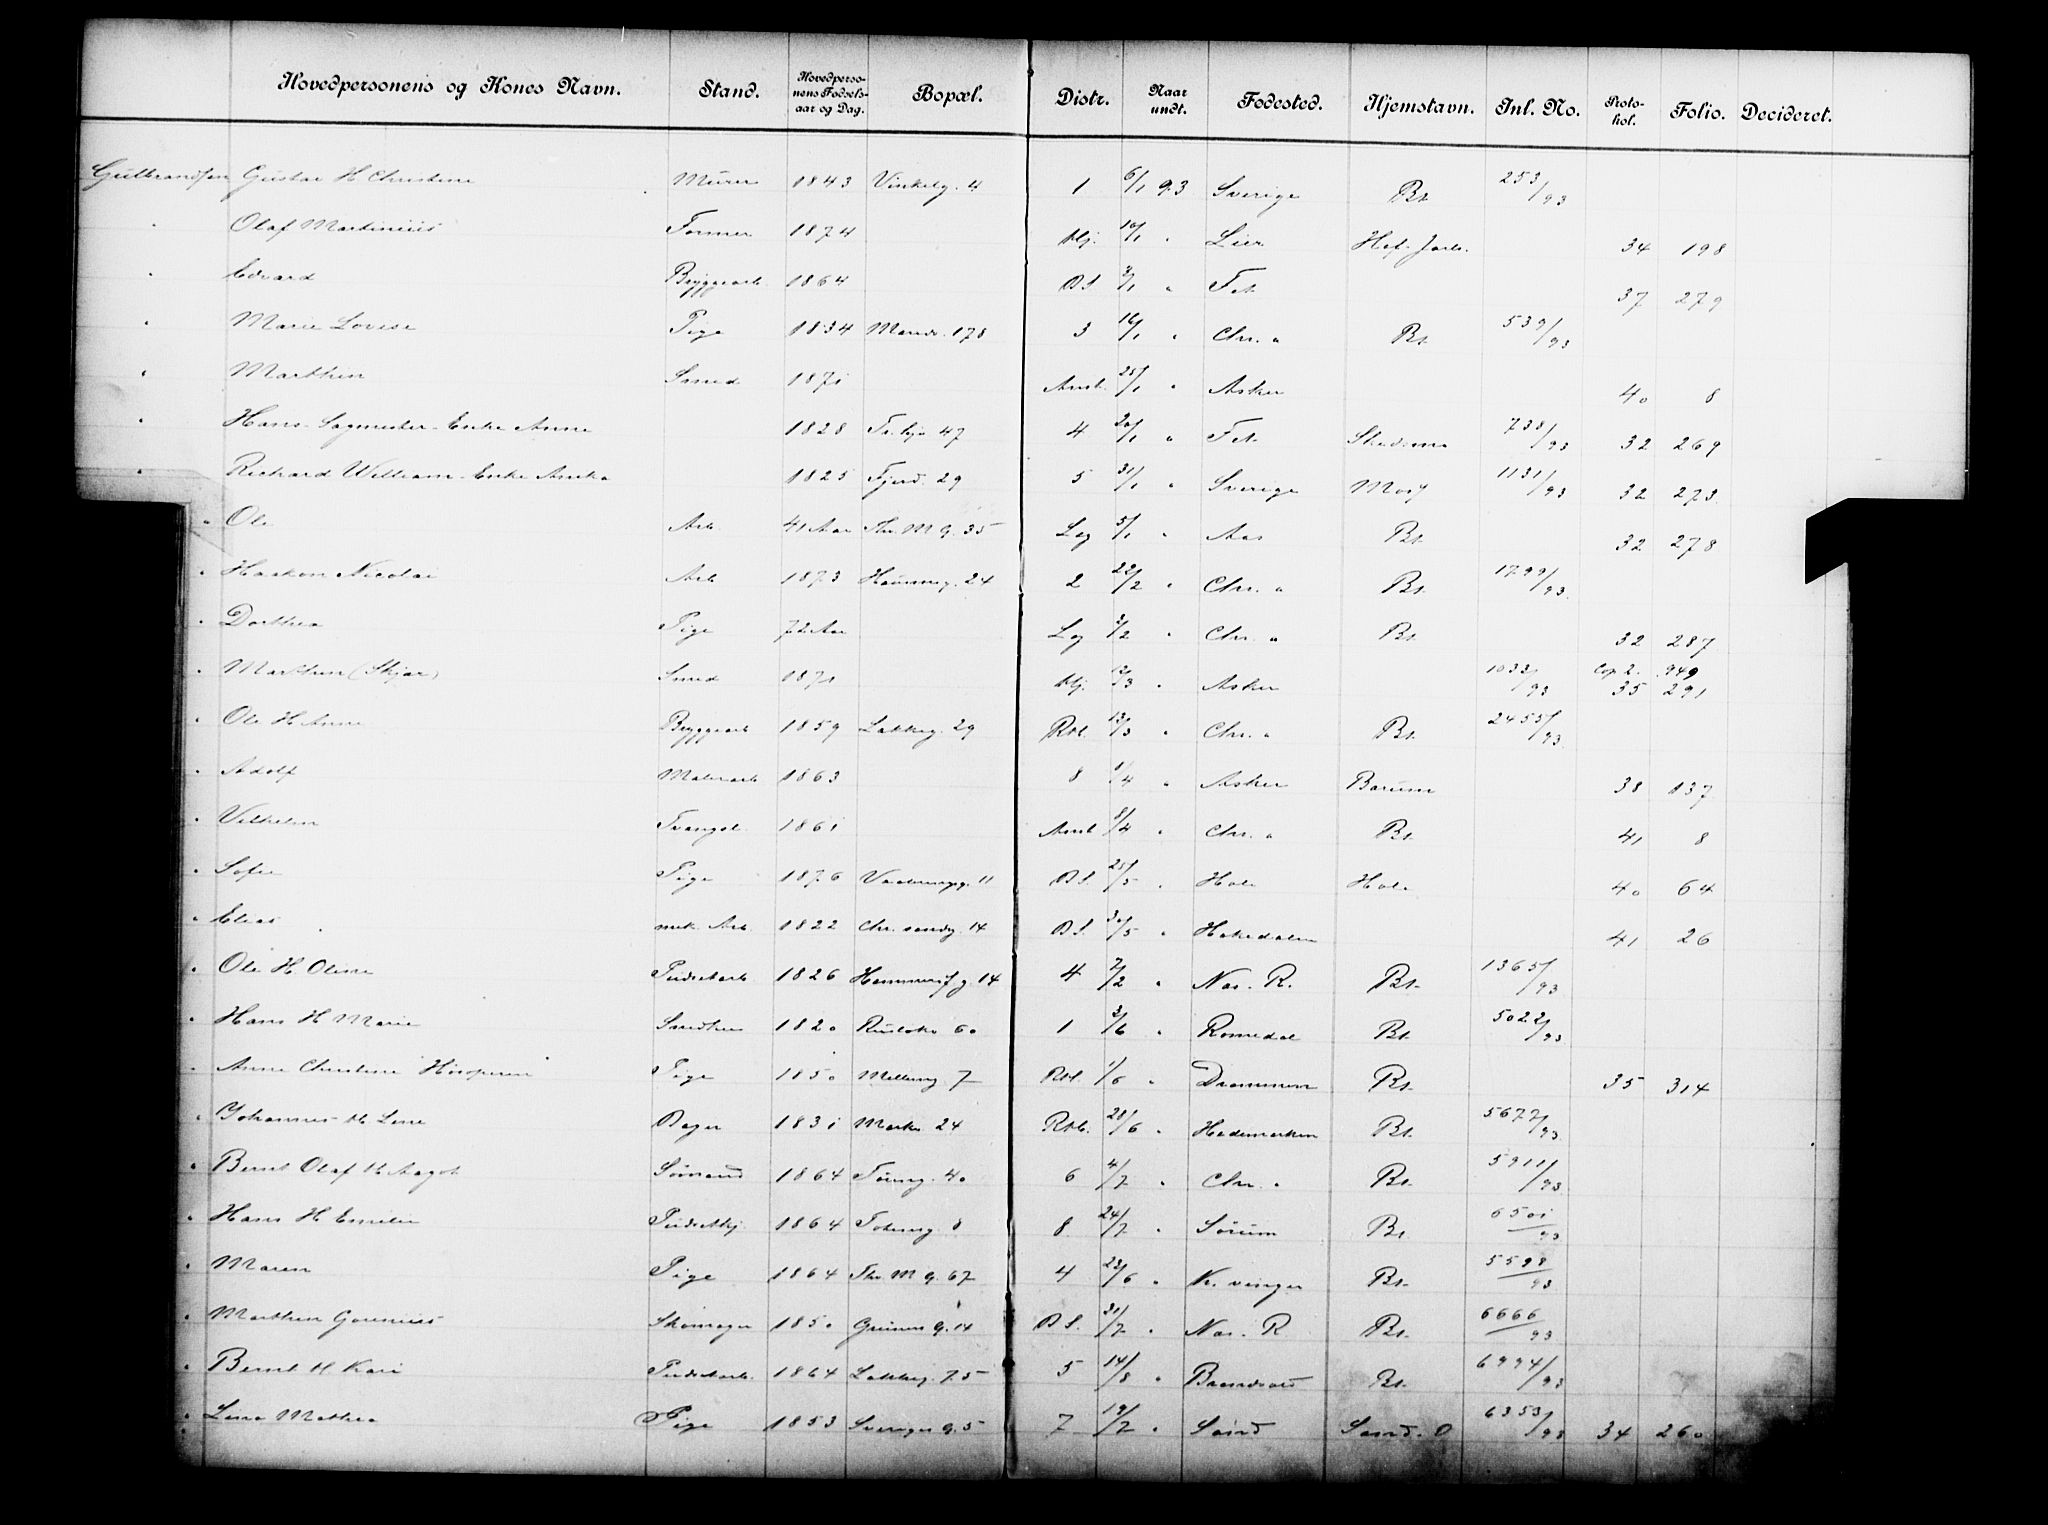 Hovedpersonens og Kones Navn. Stand. Hovedpersonens Fødselsaar og Dag. Bopæl. Distr. Naar undt. Fødested. Hjemstavn. Inl. No. Protokol. Folio. Decideret.
Gulbrandsen Gustav H Christine Murer 1843 Vinkelg. 4 1 6/1 93 Sverige Bt. 253/93
" Olaf Martinius Former 1874 Hj. 10/1 " Lier Hof. Jarls. 34 198
" Edvard Bryggearb. 1864 B.S. 3/1 " Fet 37 279
" Marie Lovise Pige 1834 Marids. 178 3 16/1 " Chr. a Bt. 539/93
" Marthin Smed 1871 25/1 " Asker 40 8
" Hans Sagmester Enke Anne 1828 47 4 20/1 " Fet Skedsmo 738/93 32 269
" Richard William Enke 1825 Fjerd. 29 5 31/1 " Sverige Moss 1131/93 32 273
" Ole Arb. 41 Aar Thv. M g. 35 Lg 5/1 " Aas Bt. 32 278
" Haakon Nicolai Arb 1873 Hausmg. 24 2 22/2 " Chr. a Bt. 1799/93
" Dorthea Pige 72 Aar Lg 3/2 " Chr. a Bt. 32 287
" Marthin (Skjar) Smed 1871 Hj. 12/3 " Asker 1033/93 Cop 2. 949
35 291
" Ole H Anne Bryggearb 1859 Lakkeg. 29 Rtl. 13/3 " Chr. a Bt. 2455/93
" Adolf Malerarb 1863 8 1/4 " Asker Bærum 38 137
" Vilhelm 1861 8/4 " Chr. a Bt. 41 8
" Sofie Pige 1876 11 B.S. 25/5 " Hole Hole 40 64
" Elias mek. Arb. 1822 Chr. sandg. 14 B.S. 30/5 " Hakedalen 41 26
" Ole H Oline Pudsetarb 1826 Hammersf g. 14 4 7/2 " Næs. R. Bt. 1365/93
" Hans H Marie 1820 Ruseløkv 60 1 3/6 " Romedal Bt. 5022/93
" Anne Christine Pige 1850 Møllerg 7 Rtl. 1/6 " Drammen Bt. 35 314
" Johannes H Lene Bager 1831 Markv 24 Rtl. 28/6 " Hedemarken Bt. 5677/93
" Bernt Olaf H Aagot Sømand 1864 40 6 4/7 " Chr. a Bt. 5911/93
" Hans H Emilie 1864 Toteng. 8 8. 24/7 " Sørum Bt. 6501/93
" Maren Pige 1864 Thv. M g. 67 4 23/6 " K. vinger Bt. 5598/93
" Marthin Skomager 1850 Grüners g. 14 B.S. 31/7 " Næs. R Bt. 6666/93
" Bernt H Kari Pudsetarb. 1864 Lakkeg. 75 5 14/8 " Bt. 6994/93
" Lina Mathea Pige 1853 Sveriges g. 5 7 19/7 " Sand Sand. O 6353/93 34 260